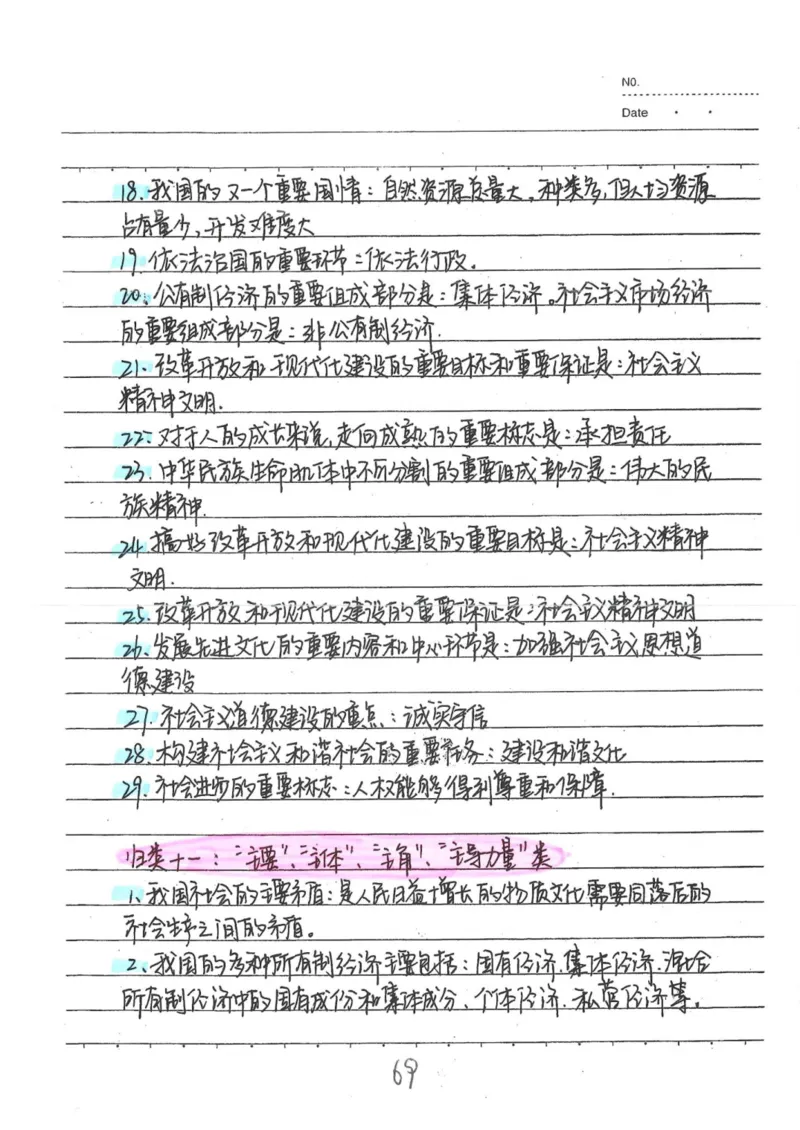 NO.
Date
18.我国的又一个重要国情：自然资源总量大，种类多，但人均资源
占有量少，开发难度大
19.依法治国的重要环节：依法行政。
20.公有制经济的重要组成部分是：集体经济。社会主义市场经济
的重要组成部分是：非公有制经济.
21.改革开放和现代化建设的重要目标和重要保证是：社会主义
精神文明.
22.对于人的成长来说，走向成熟的重要标志是：承担责任
23.中华民族生命肌体中不可分割的重要组成部分是：伟大的民
族精神.
24.搞好改革开放和现代化建设的重要目标是：社会主义精神
文明.
25.改革开放和现代化建设的重要保证是：社会主义精神文明
26.发展先进文化的重要内容和中心环节是：加强社会主义思想道
德建设
27.社会主义道德建设的重点：诚实守信
28.构建社会主义和谐社会的重要任务：建设和谐文化
29.社会进步的重要标志：人权能够得到尊重和保障.
归类十一：“主要”、“主体”、“主角”、“主导力量”类
1、我国社会的主要矛盾：是人民日益增长的物质文化需要同落后的
社会生产之间的矛盾。
2、我国的多种所有制经济主要包括：国有经济、集体经济、混合
所有制经济中的国有成份和集体成分、个体经济、私营经济等。
69